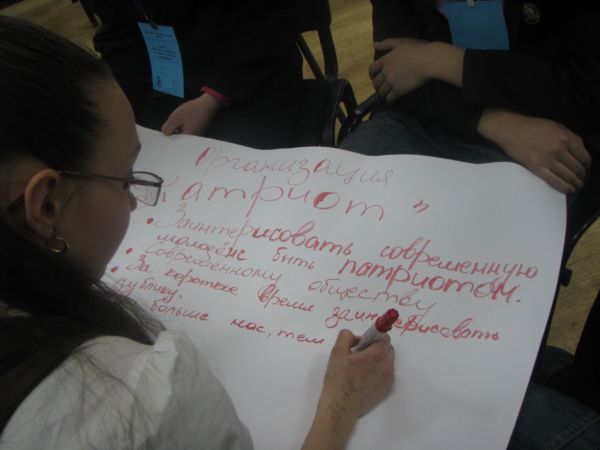 Организация
"Патриот"
• Заинтерисовать современную
молодёж быть патриотом.
• Современному обществу
• За короткое время заинтерисовать
публику.
больше нас, тем